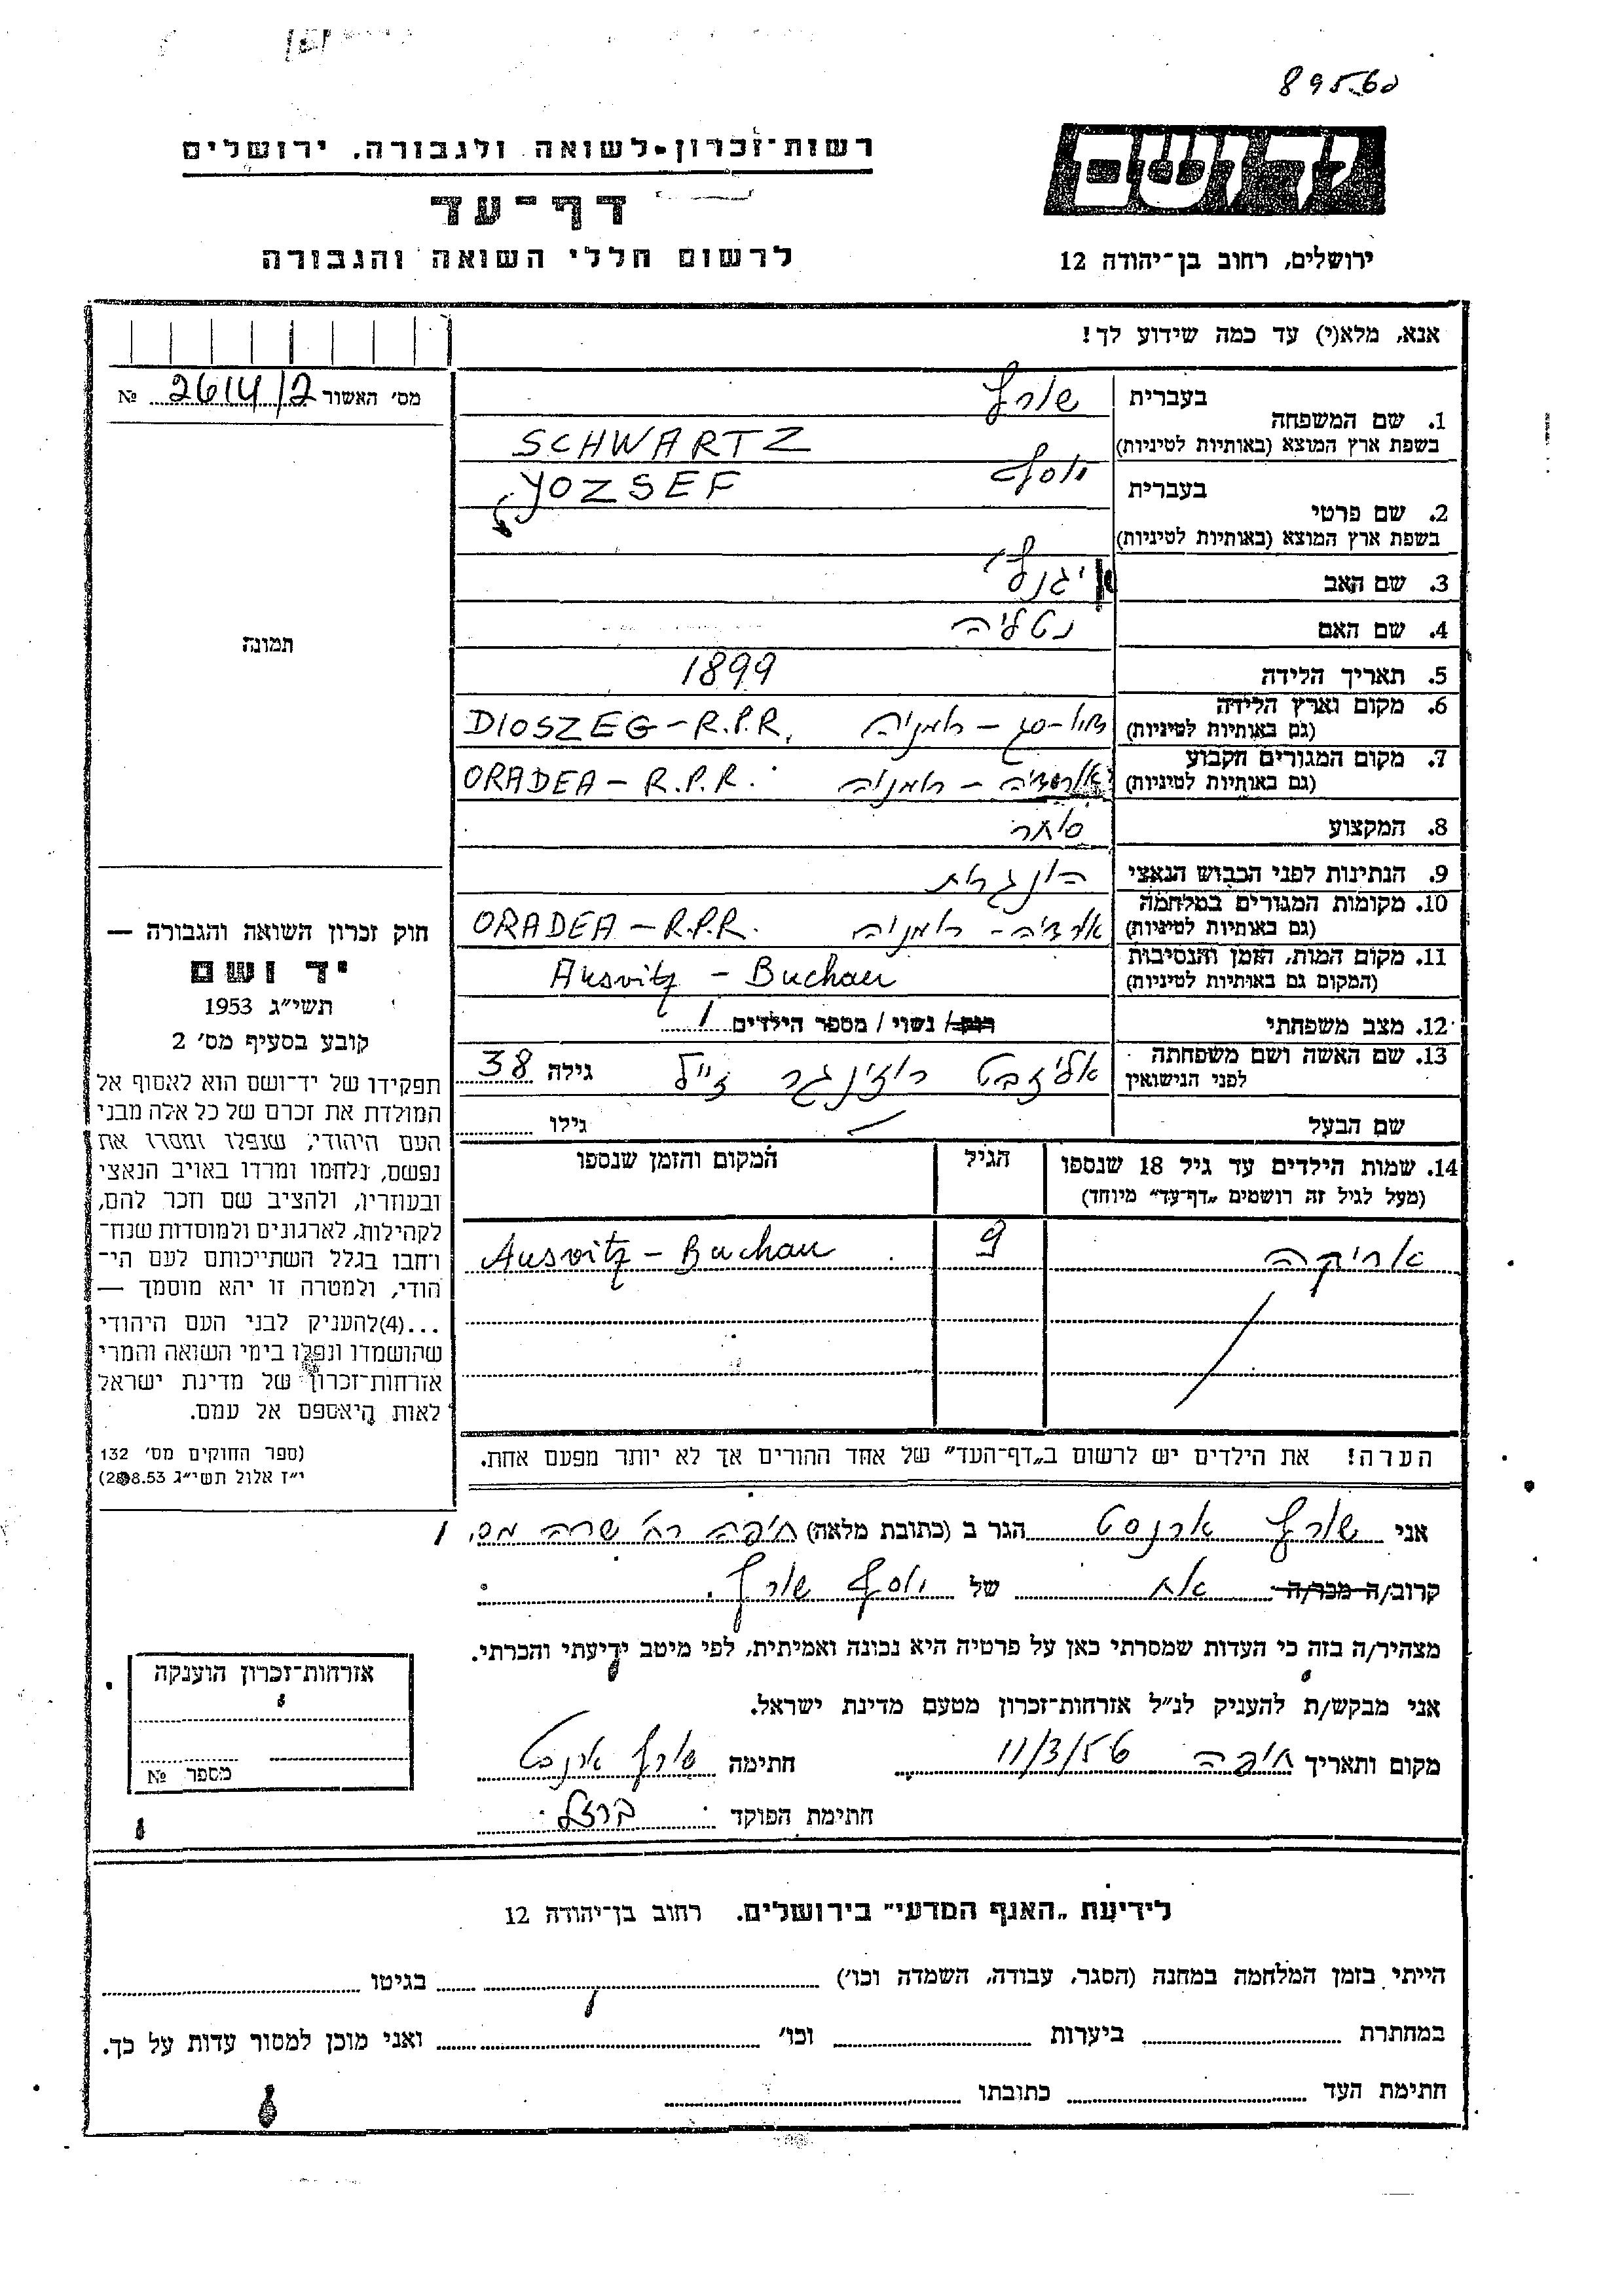 895.60
רשות־זכרון לשואה ולגבורה. ירושלים
דף־עד
לרשום חללי השואה והגבורה
יד ושם
ירושלים, רחוב בן־יהודה 12
אנא, מלא(י) עד כמה שידוע לך!
מס׳ האשור 2614/2 №
1. שם המשפחה
בעברית שורץ
בשפת ארץ המוצא (באותיות לטיניות) SCHWARTZ
2. שם פרטי
בעברית יוסף YOZSEF
בשפת ארץ המוצא (באותיות לטיניות)
3. שם האב
4. שם האם נטליה
5. תאריך הלידה 1899
6. מקום וארץ הלידה
(גם באותיות לטיניות) רומניה DIOSZEG – R.P.R.
7. מקום המגורים הקבוע
(גם באותיות לטיניות) אורדיה – רומניה ORADEA – R.P.R.
8. המקצוע סוחר
9. הנתינות לפני הכבוש הנאצי הונגרית
10. מקומות המגורים במלחמה
(גם באותיות לטיניות) אורדיה – רומניה ORADEA – R.P.R.
11. מקום המות, הזמן והנסיבות
(המקום גם באותיות לטיניות) Ausvitz – Buchau
12. מצב משפחתי רווק/ נשוי / מספר הילדים 1
13. שם האשה ושם משפחתה
לפני הנישואין אליזבט רוזינגר ז״ל גילה 38
שם הבעל גילו
14. שמות הילדים עד גיל 18 שנספו הגיל המקום והזמן שנספו
(מעל לגיל זה רושמים „דף־עד״ מיוחד)
אריקה 9 Ausvitz – Buchau
הערה! את הילדים יש לרשום ב„דף־העד״ של אחד ההורים אך לא יותר מפעם אחת.
תמונה
חוק זכרון השואה והגבורה —
יד ושם
תשי״ג 1953
קובע בסעיף מס׳ 2
תפקידו של יד־ושם הוא לאסוף אל
המולדת את זכרם של כל אלה מבני
העם היהודי, שנפלו ומסרו את
נפשם, נלחמו ומרדו באויב הנאצי
ובעוזריו, ולהציב שם וזכר להם,
לקהילות, לארגונים ולמוסדות שנח־
רחבו בגלל השתייכותם לעם הי־
הודי, ולמטרה זו יהא מוסמך —
...(4)להעניק לבני העם היהודי
שהושמדו ונפלו בימי השואה והמרי
אזרחות־זכרון של מדינת ישראל
לאות היאספם אל עמם.
(ספר החוקים מס׳ 132
י״ז אלול תשי״ג 28.8.53)
אני שורץ ארנסט הגר ב (כתובת מלאה) חיפה רח׳ שרה מס, 1
קרוב/ה מכר/ה אח של יוסף שורץ.
מצהיר/ה בזה כי העדות שמסרתי כאן על פרטיה היא נכונה ואמיתית, לפי מיטב ידיעתי והכרתי.
אני מבקש/ת להעניק לנ״ל אזרחות־זכרון מטעם מדינת ישראל.
מקום ותאריך חיפה 11/3/56 חתימה שורץ ארנסט
חתימת הפוקד ברזל
אזרחות־זכרון הוענקה
מספר №
לידיעת „האגף המדעי״ בירושלים. רחוב בן־יהודה 12
הייתי בזמן המלחמה במחנה (הסגר, עבודה, השמדה וכו׳) בגיטו
במחתרת ביערות וכו׳ ואני מוכן למסור עדות על כך.
חתימת העד כתובתו